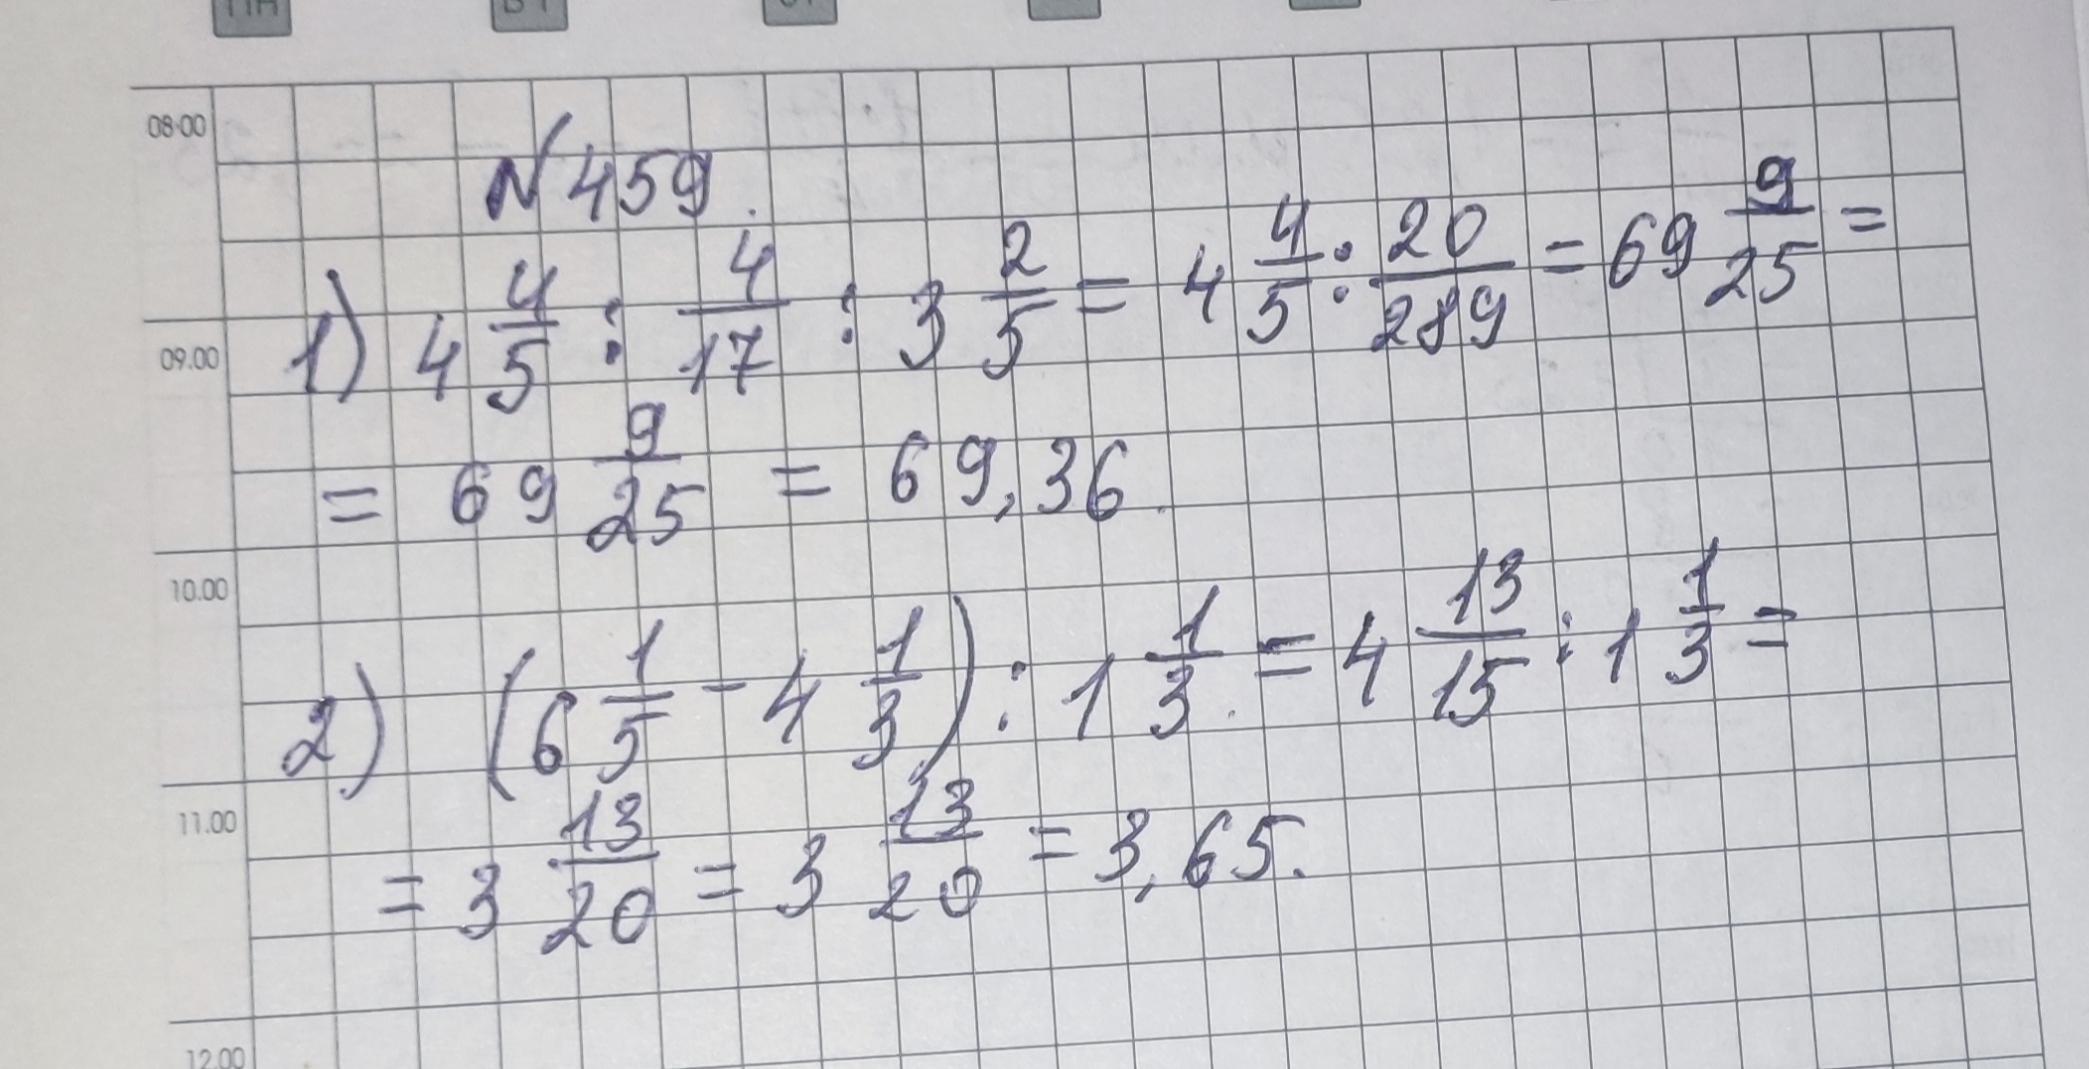 ПН ВТ
08:00
№ 459.
1) 4 4/5 : 4/17 : 3 2/5 = 4 4/5 : 20/289 = 69 9/25 =
09.00
= 69 9/25 = 69,36.
10.00
2) (6 1/5 - 4 1/3) : 1 1/3 = 4 13/15 : 1 1/3 =
11.00
= 3 13/20 = 3 13/20 = 3,65.
12.00